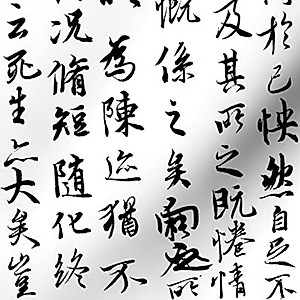 得於己怏然自足不
及其所之既惓情
慨係之矣向之所
為陳迹猶不
況脩短隨化終
云死生亦大矣豈